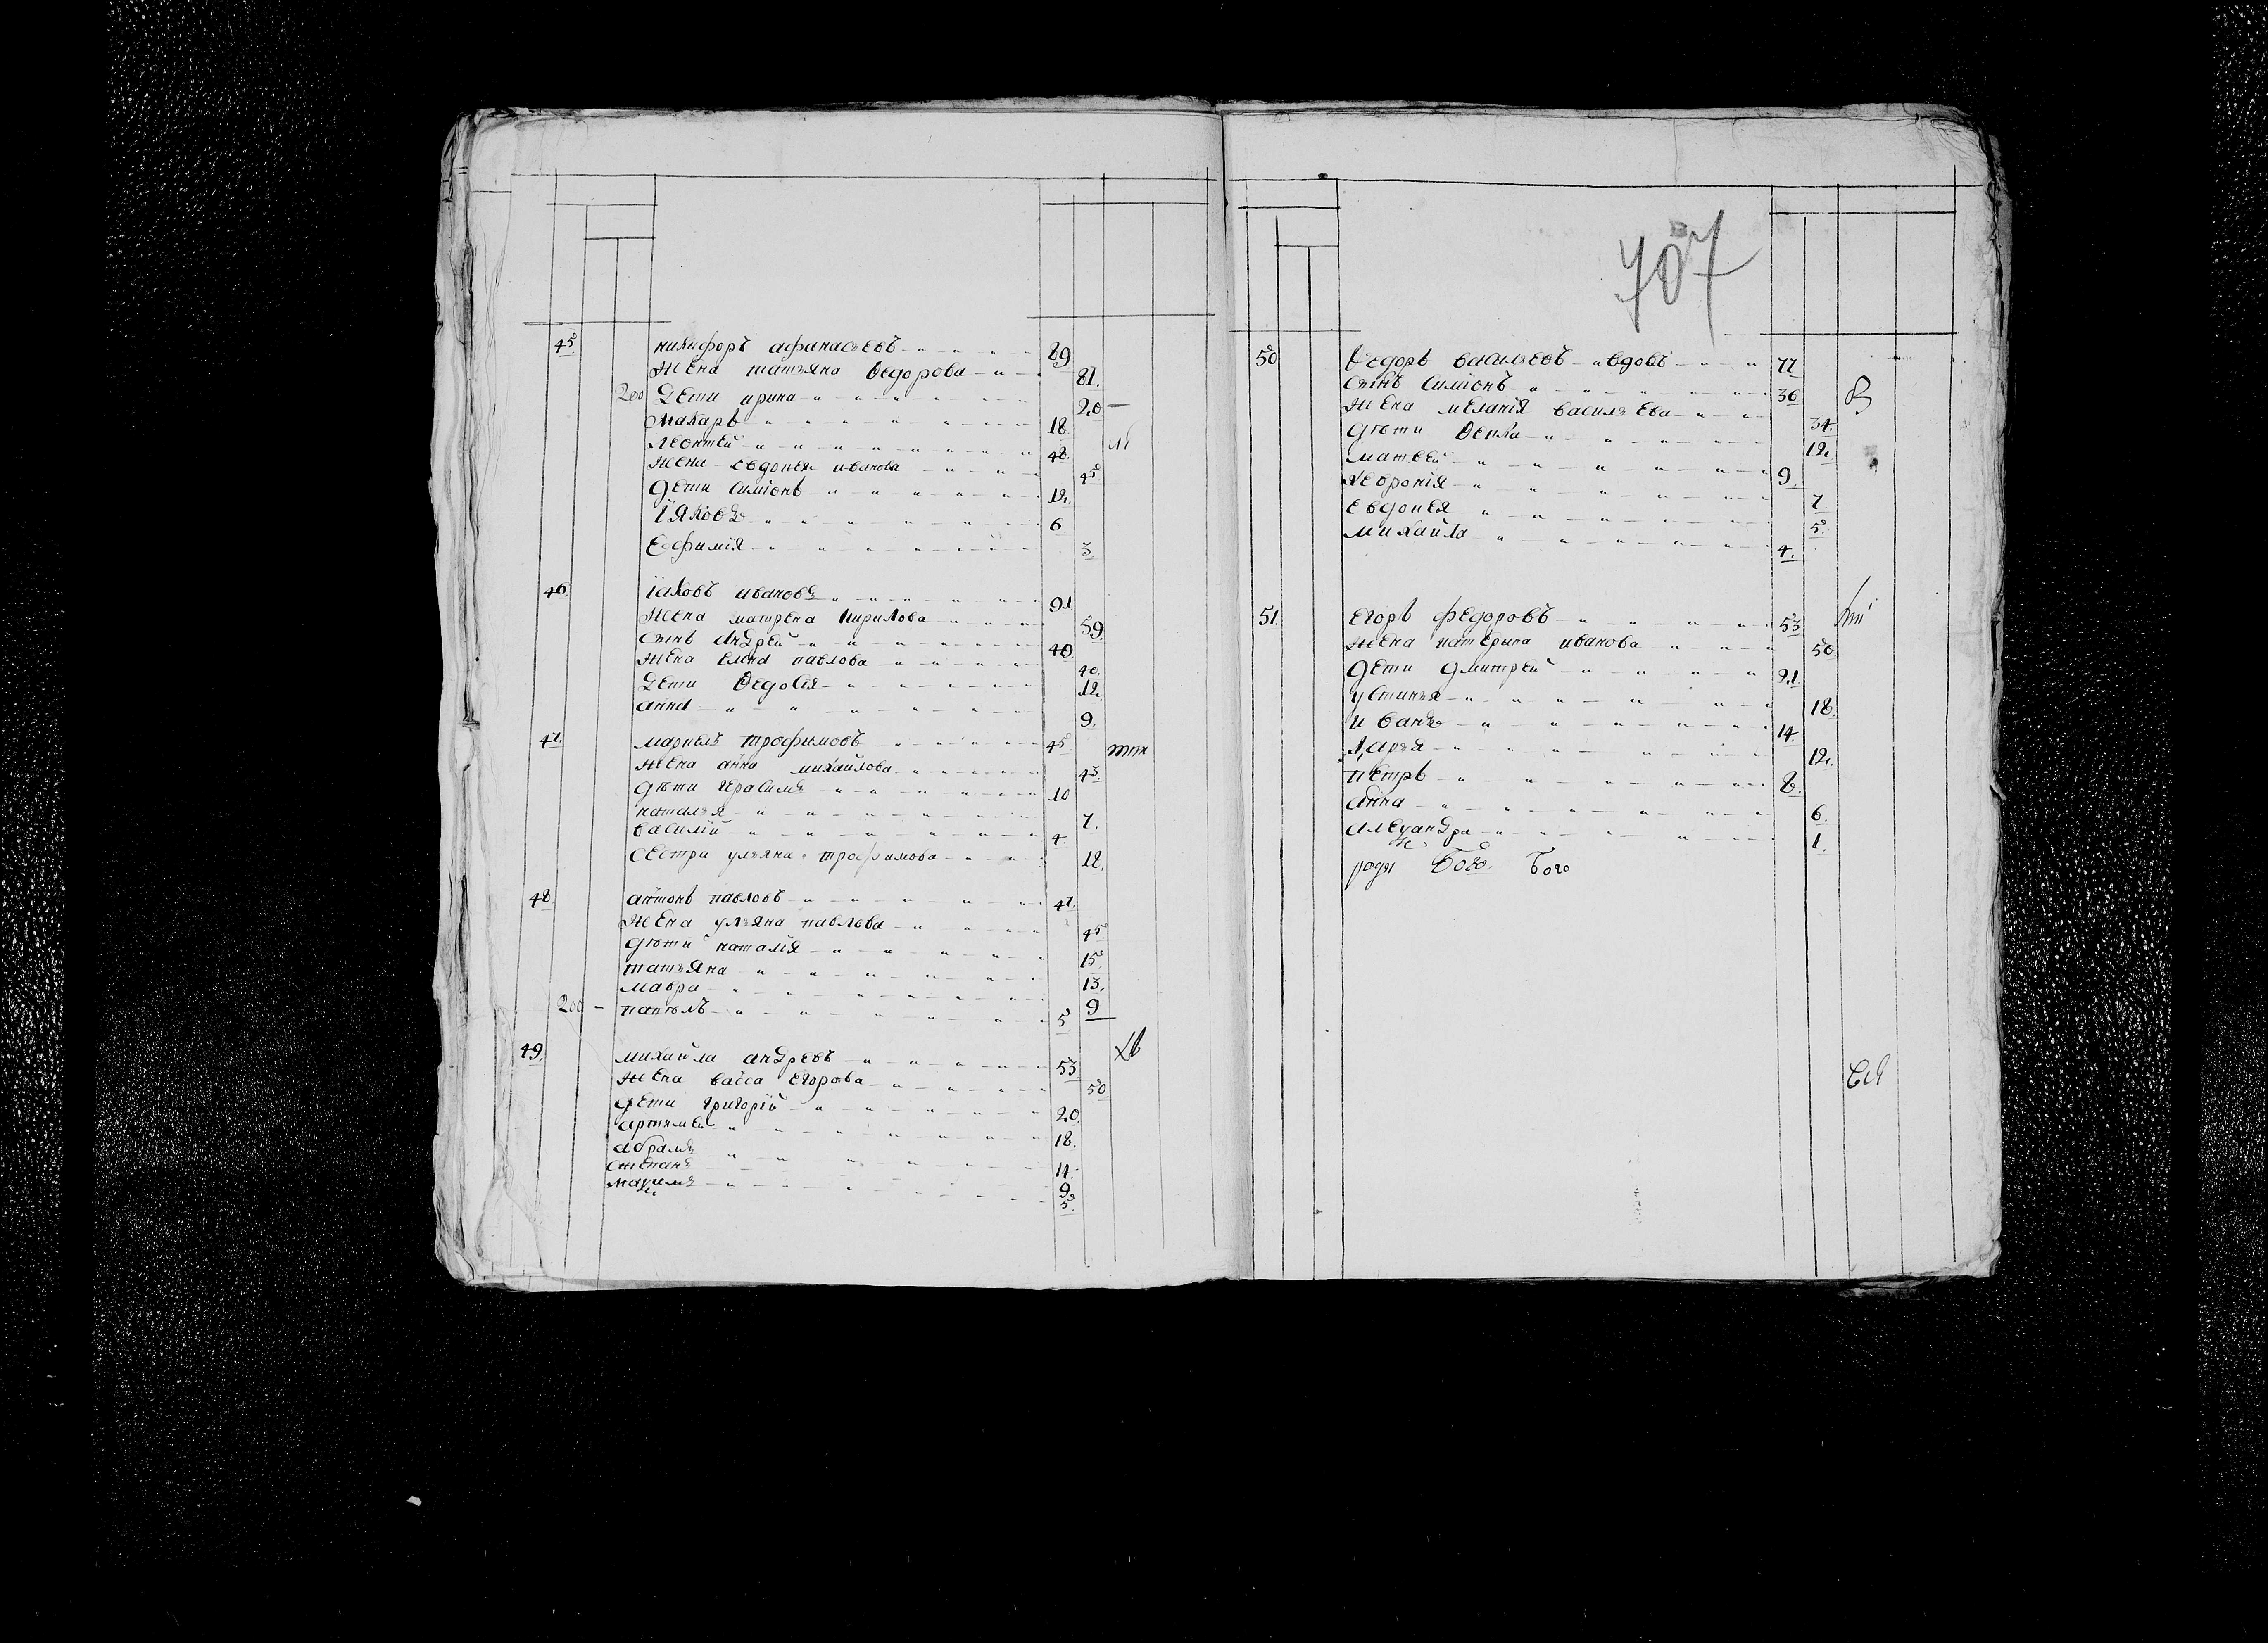 45 никифоръ афанасьевъ 89
жена татьяна Ѳедорова 81.
200 Дети ирина 20
Макаръ 18
леонтей 48.
жена евдокея иванова 45
дети симіонъ 12.
Їяковъ 6
Ефимія 3
46 їаковъ ивановъ 91
жена матрена кирилова 59
сынъ андрей 40
жена Елена павлова 40.
Дети Ѳедосія 12.
анна 9.
47. маркелъ трофимовъ 45
жена анна михайлова 43.
дѣти герасимъ 10
наталья 7.
василій 4
сестра ульяна трофимова 18.
48 антонъ павловъ 47
жена ульяна павлова 45
дѣти наталія 15.
татьяна 13.
мавра 9
200 – 5
49. михайла андреевъ 53
жена васса Егорова 50
дети григорій 20
артимей 18.
абрамъ 14.
степанъ 9.
максимъ 5.
707
50 Ѳедоръ васильевъ вдовъ 77
сынъ симіонъ 36
жена меланія васильева 34.
дѣти Ѳекла 12.
матвей 9.
Ѳевронія 7.
евдокея 5.
михайла 4.
51. егоръ федоровъ 53
жена катерина иванова 50
дети дмитрей 21.
устинья 18.
иванъ 14.
дарья 12.
петръ 8.
анна 6.
александра 1.
Бого Бого